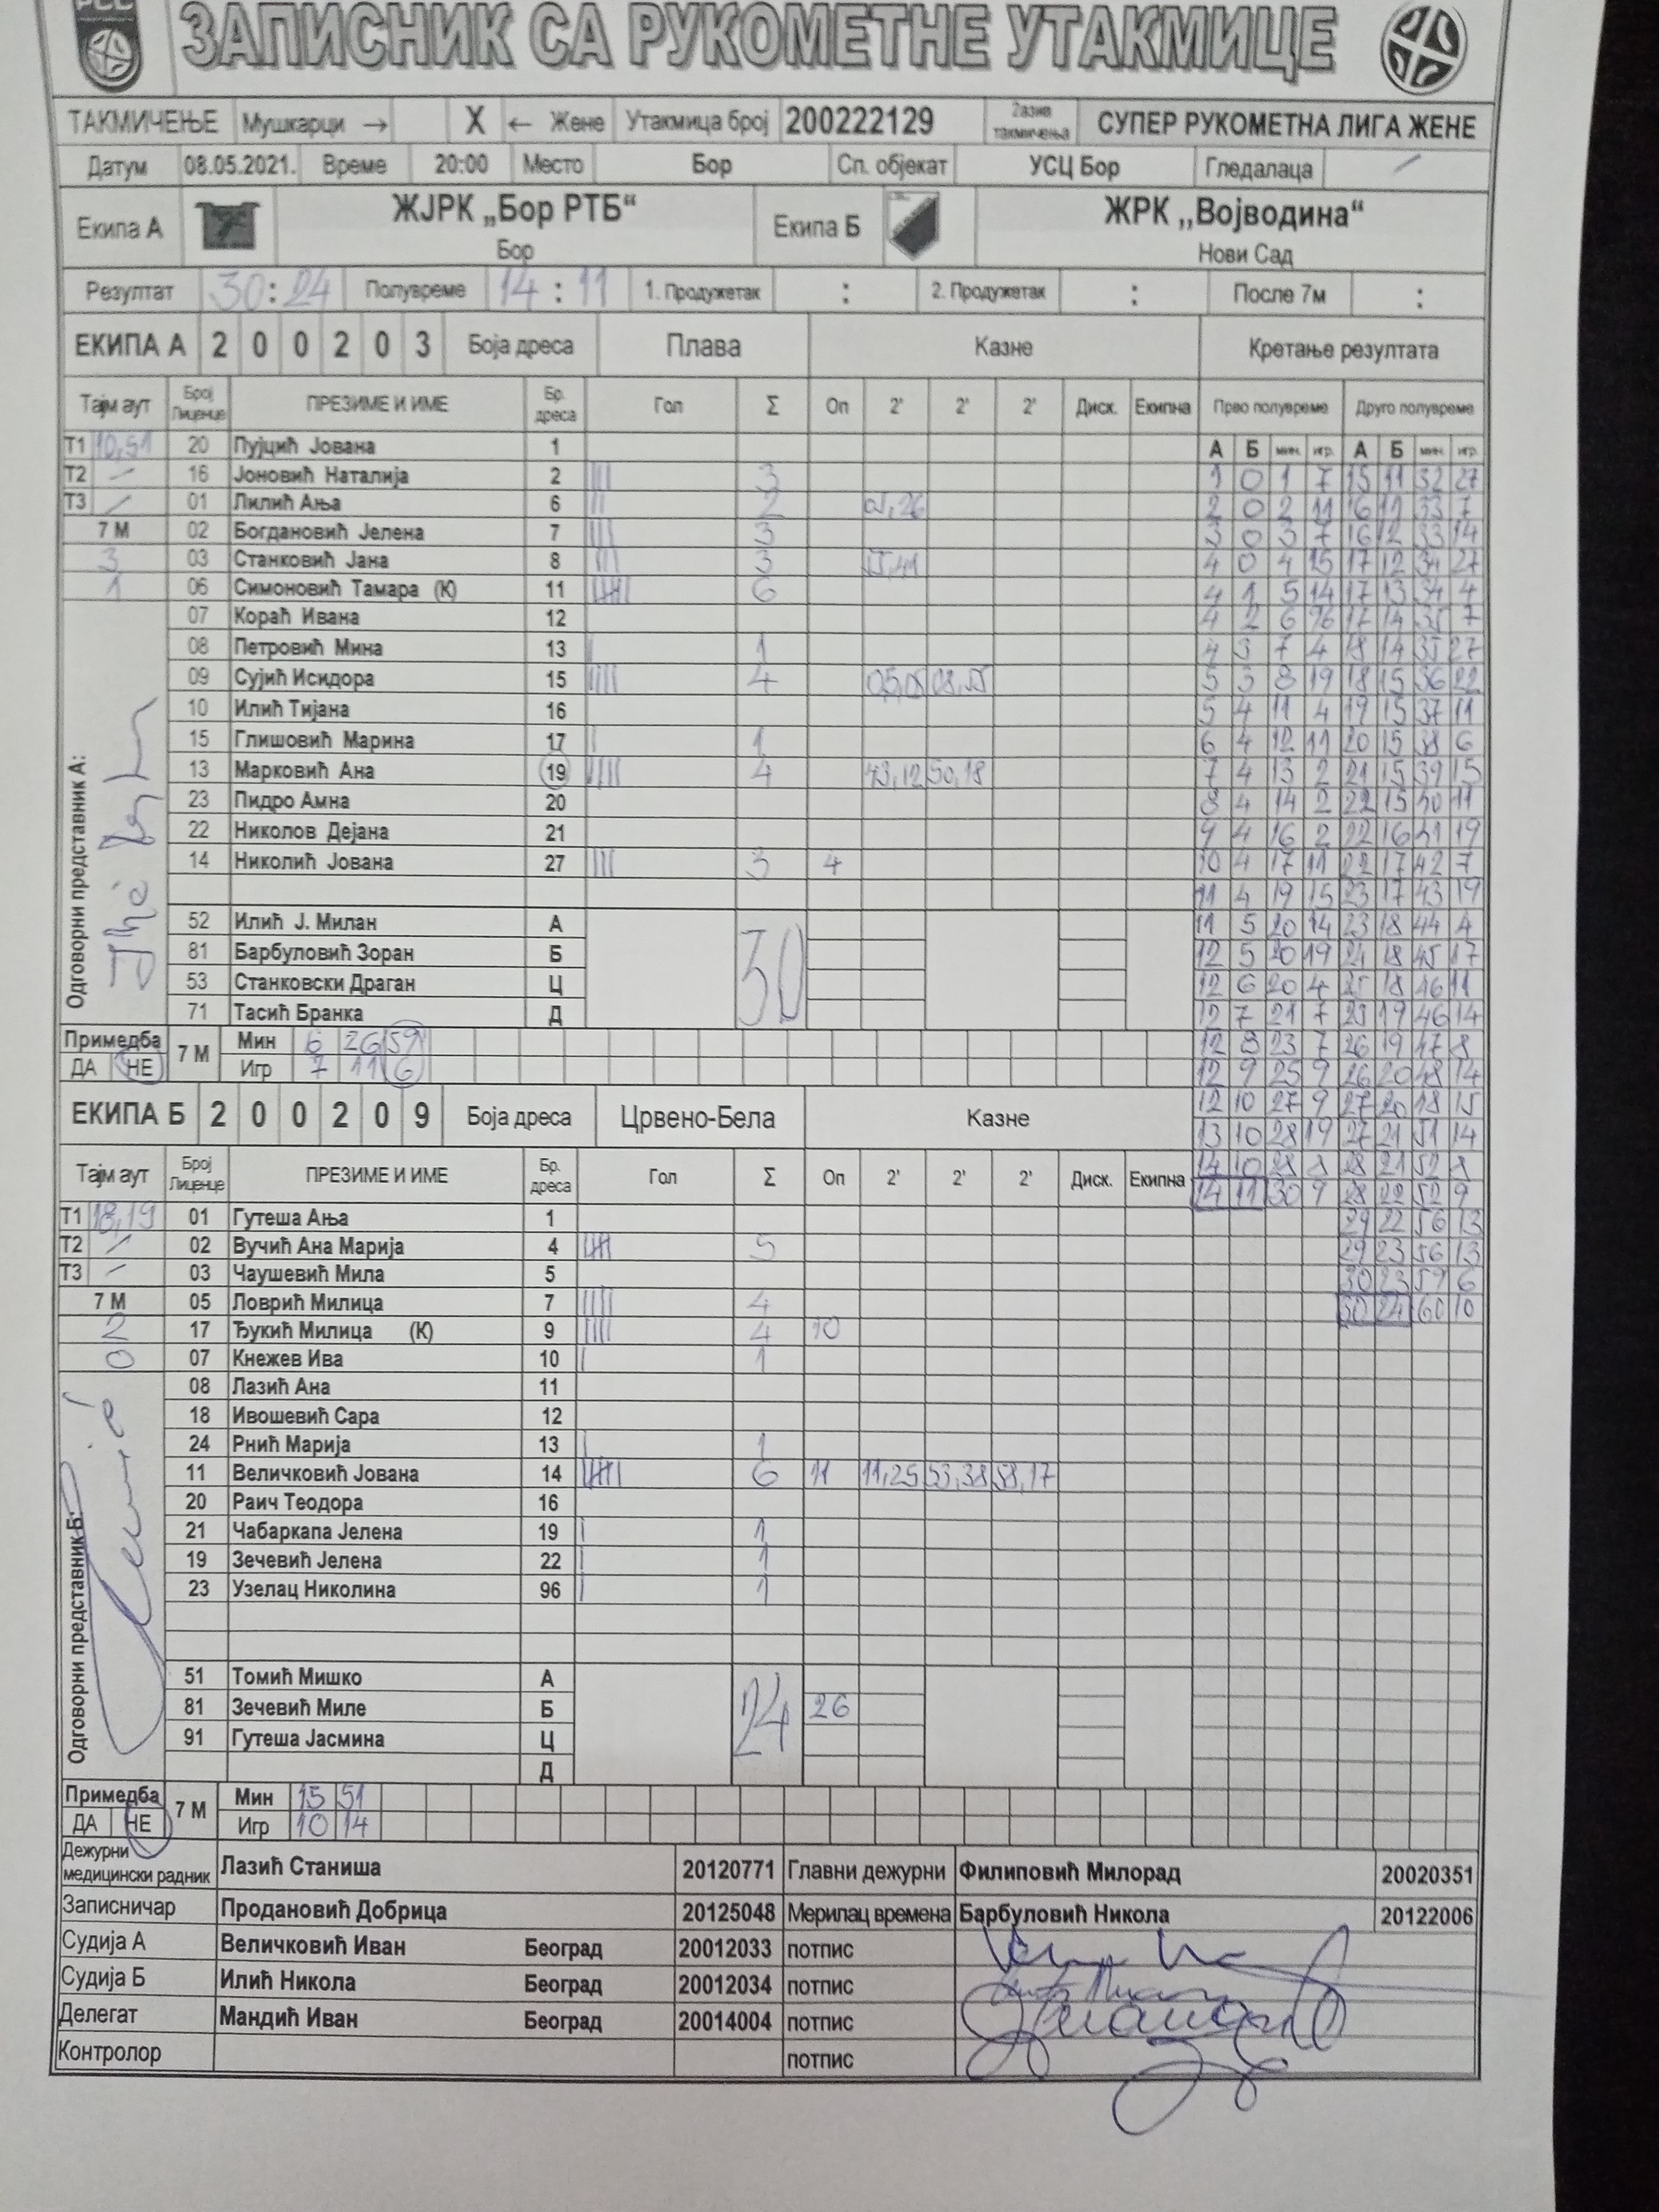 РСС
ЗАПИСНИК СА РУКОМЕТНЕ УТАКМИЦЕ
ТАКМИЧЕЊЕ Мушкарци → X ← Жене Утакмица број 200222129 такмичења СУПЕР РУКОМЕТНА ЛИГА ЖЕНЕ
Датум 08.05.2021. Време 20:00 Место Бор Сп. објекат УСЦ Бор Гледалаца /
Екипа А ЖЈРК „Бор РТБ“ Бор Екипа Б ЖРК „Војводина“ Нови Сад
Резултат 30:24 Полувреме 14:11 1. Продужетак : 2. Продужетак : После 7м :
ЕКИПА А 2 0 0 2 0 3 Боја дреса Плава Казне Кретање резултата
Тајм аут Број Лиценце ПРЕЗИМЕ И ИМЕ Бр. дреса Гол Σ Оп 2' 2' 2' Диск. Екипна Прво полувреме Друго полувреме
Т1 10,51 20 Пујцић Јована 1 А Б мин. игр. А Б мин. игр.
Т2 / 16 Јоновић Наталија 2 ||| 3 1 0 1 7 15 11 32 27
Т3 / 01 Лилић Ања 6 || 2 2 0 2 11 16 11 33 7
7 М 02 Богдановић Јелена 7 ||| 3 3 0 3 7 16 12 33 14
3 03 Станковић Јана 8 ||| 3 4 0 4 15 17 12 34 27
1 06 Симоновић Тамара (К) 11 6 4 1 5 14 17 13 34 4
07 Кораћ Ивана 12 4 2 6 96 17 14 35 7
08 Петровић Мина 13 | 1 4 3 7 4 18 14 35 27
09 Сујић Исидора 15 |||| 4 5 3 8 19 18 15 36 22
10 Илић Тијана 16 5 4 11 4 19 15 37 11
15 Глишовић Марина 17 | 1 6 4 12 11 20 15 38 6
13 Марковић Ана 19 |||| 4 43,12 50,18 7 4 13 2 21 15 39 15
23 Пидро Амна 20 8 4 14 2 22 15 40 11
22 Николов Дејана 21 9 4 16 2 22 16 41 19
14 Николић Јована 27 ||| 3 4 10 4 17 11 22 17 42 7
11 4 19 15 23 17 43 19
52 Илић Ј. Милан А 30 11 5 20 14 23 18 44 4
81 Барбуловић Зоран Б 12 5 20 19 24 18 45 17
53 Станковски Драган Ц 12 6 20 4 25 18 46 11
71 Тасић Бранка Д 12 7 21 7 25 19 46 14
Одговорни представник А:
Примедба 7 М Мин 6 26 59 12 8 23 7 26 19 47 8
ДА НЕ Игр 7 11 6 12 9 25 9 26 20 48 14
ЕКИПА Б 2 0 0 2 0 9 Боја дреса Црвено-Бела Казне 12 10 27 9 27 20 48 15
13 10 28 19 27 21 51 14
Тајм аут Број Лиценце ПРЕЗИМЕ И ИМЕ Бр. дреса Гол Σ Оп 2' 2' 2' Диск. Екипна 14 10 28 8 28 21 52 8
14 11 30 9 28 22 52 9
Т1 18,19 01 Гутеша Ања 1 29 22 56 13
Т2 / 02 Вучић Ана Марија 4 5 29 23 56 13
Т3 / 03 Чаушевић Мила 5 30 23 59 6
7 М 05 Ловрић Милица 7 |||| 4 30 24 60 10
2 17 Ђукић Милица (К) 9 |||| 4 10
0 07 Кнежев Ива 10 | 1
08 Лазић Ана 11
18 Ивошевић Сара 12
24 Рнић Марија 13 | 1
11 Величковић Јована 14 6 11 11,25 53,38 58,17
20 Раич Теодора 16
21 Чабаркапа Јелена 19 | 1
19 Зечевић Јелена 22 | 1
23 Узелац Николина 96 | 1
51 Томић Мишко А 24
81 Зечевић Миле Б 26
91 Гутеша Јасмина Ц
Д
Одговорни представник Б:
Примедба 7 М Мин 15 51
ДА НЕ Игр 10 14
Дежурни медицински радник Лазић Станиша 20120771 Главни дежурни Филиповић Милорад 20020351
Записничар Продановић Добрица 20125048 Мерилац времена Барбуловић Никола 20122006
Судија А Величковић Иван Београд 20012033 потпис
Судија Б Илић Никола Београд 20012034 потпис
Делегат Мандић Иван Београд 20014004 потпис
Контролор потпис